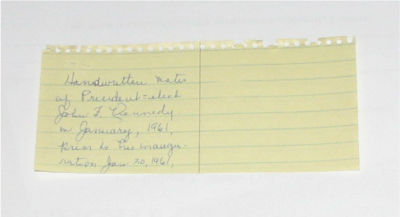 Handwritten notes
of President-elect
John F. Kennedy
in January, 1961,
prior to his inaugu-
ration Jan 20, 1961,